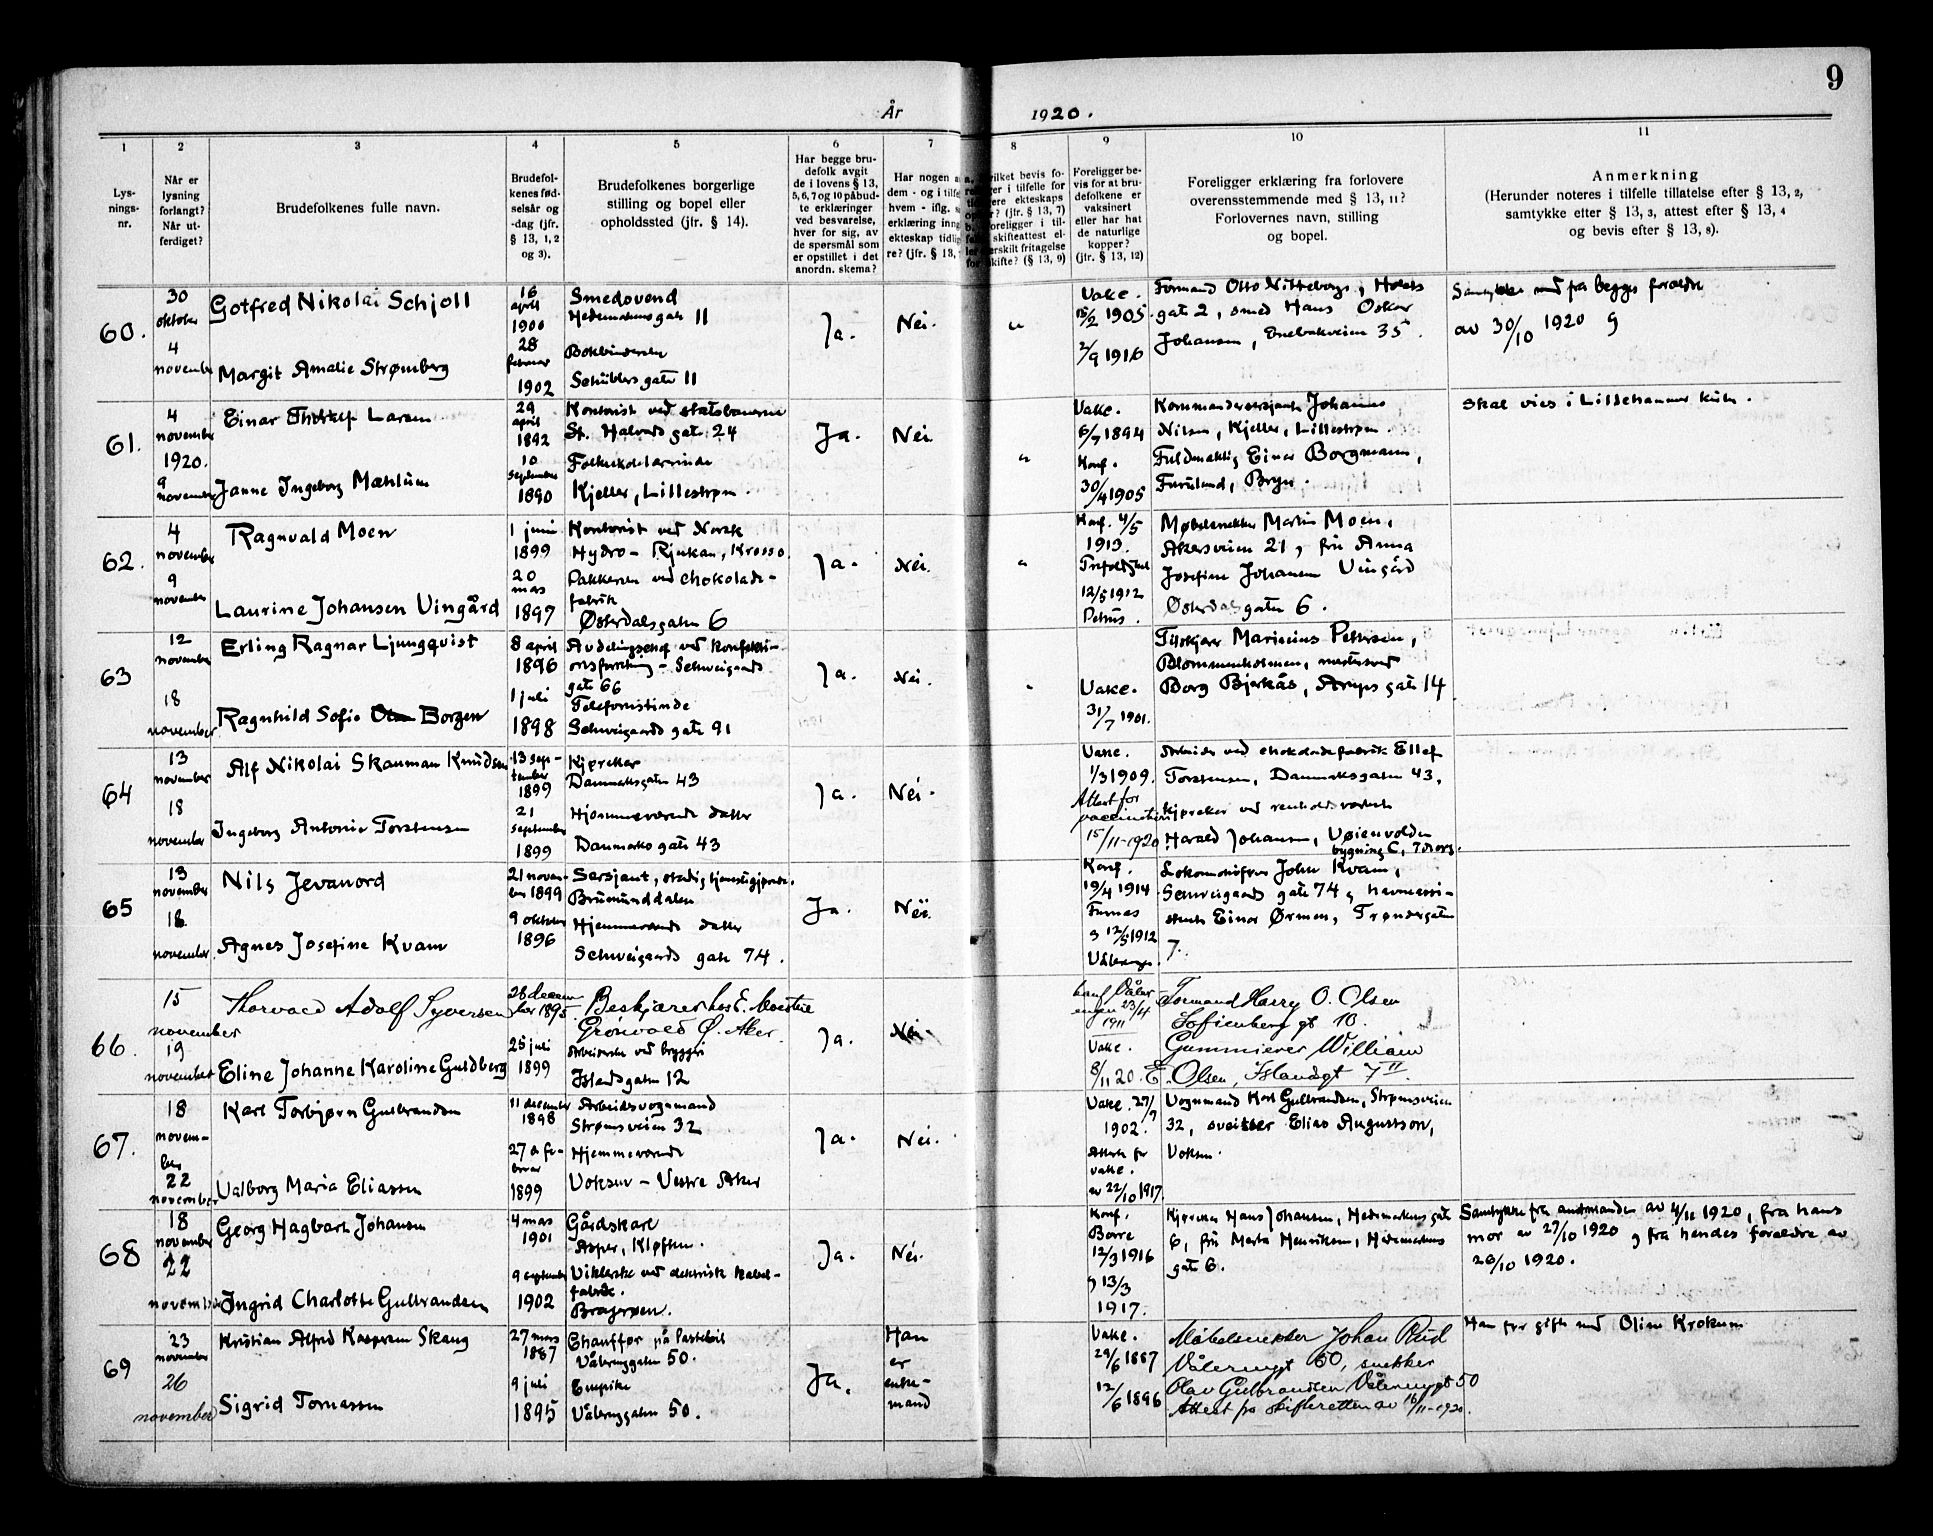 9
År 1920.
1 2 3 4 5 6 7 8 9 10 11
Lys-
nings-
nr.
Når er
lysning
forlangt?
Når ut-
ferdiget?
Brudefolkenes fulle navn.
Brudefol-
kenes fød-
selsår og
-dag (jfr.
§ 13, 1, 2
og 3).
Brudefolkenes borgerlige
stilling og bopel eller
opholdssted (jfr. § 14).
Har begge bru-
defolk avgit
de i lovens § 13,
5, 6, 7 og 10 påbud-
te erklæringer
ved besvarelse,
hver for sig, av
de spørsmål som
er opstillet i det
anordn. skema?
Har nogen a
dem - og i tilfe
hvem - iflg.
erklæring inng
ekteskap tidlig
re? (jfr. § 13,
ilket bevis fo-
ger i tilfelle for
ere ekteskaps
r? (jfr. § 13, 7)
oreligger i til-
skifteattest el-
erskilt fritagelse
skifte? (§ 13, 9)
Foreligger be-
vis for at bru-
defolkene er
vaksinert
eller har hat
de naturlige
kopper?
(jfr. § 13, 12)
Foreligger erklæring fra forlovere
overensstemmende med § 13, 11?
Forlovernes navn, stilling
og bopel.
Anmerkning
(Herunder noteres i tilfelle tillatelse efter § 13, 2,
samtykke efter § 13, 3, attest efter § 13, 4
og bevis efter § 13, 8).
60.
30
oktober
4
november
Gotfred Nikolai Schjoll
Margit Amalie Strømberg
16
april
1900
28
februar
1902
Smedsvend
Hedemarksgate 11
Bokbinderske
Schüblersgate 11
Ja.
Nei.
"
Vakc.
15/2 1905.
2/9 1916
Formand Otto Nitteberg, Holsts
gate 2, smed Hans Oskar
Johansen, Enebakveien 35.
Samtykke fra begges forældre
av 30/10 1920
61.
4
november
1920.
9
november
Einar Thorleif Larsen
Janne Ingeborg Mæhlum
29
april
1892
10
september
1890
Kontorist ved statsbanerne
St. Halvards gate 24
Folkeskolelærerinde
Kjeller, Lillestrøm.
Ja.
Nei.
"
Vakc.
6/7 1894
Konf.
30/4 1905
Kommandersersjant Johannes
Nilsen, Kjeller, Lillestrøm.
Fuldmektig Einar Borgmann,
Furulund, Bryn.
Skal vies i Lillehammer kirke.
62.
4
november
9
november
Ragnvald Moen
Laurine Johansen Vingård
1 juni
1899
20
mars
1897
Kontorist ved Norsk
Hydro - Rjukan, Krosso.
Pakkerske ved chokolade-
fabrik
Østerdalsgaten 6
Ja.
Nei.
"
Konf. 4/5
1913.
12/5 1912
Petrus.
Møbelsnekker Martin Moen,
Akersveien 21, fru Anna
Josefine Johansen Vingård
Østerdalsgaten 6.
63
12
november
18
november
Erling Ragnar Ljungqvist
Ragnhild Sofie Borgen
8 april
1896
1 juli
1898
Avdelingschef ved konfeksi-
onsforretning - Schweigaards
gate 66
Telefonistinde
Schweigaards gate 91
Ja.
Nei.
Vakc.
31/7 1901.
Tilskjærer Marinius Pettersen,
Blommenholmen,
Borg Bjerkås, Arups gate 14
64
13
november
18
november
Alf Nikolai Skauman Knudsen
Ingeborg Antonie Torstensen
13 sep-
tember
1899
21
september
1899
Kjøreker
Danmarksgaten 43
Hjemmeværende datter
Danmarks gate 43
Ja.
Nei.
Vakc.
1/3 1909.
Attest for
vaccination
15/11-1920
Arbeider ved chokoladefabrik Ellef
Torstensen, Danmarksgaten 43,
kjøreker ved renholdsverket
Harald Johansen, Vøienvolden
bygning C, Torshov.
65
13
november
18
november.
Nils Jevanord
Agnes Josefine Kvam
21 novem-
ber 1899
9 oktober
1896
Sersjant, stadig tjenestegjørende.
Brumunddalen
Hjemmeværende datter
Schweigaards gate 74.
Ja.
Nei.
Konf.
19/4 1914
Furnes
12/5 1912
Vålerengen.
Lokomotivfører John Kvam,
Schweigaards gate 74, havneassi-
stent Einar Ørmen, Trøndergaten
7.
66.
15
november
19
november
Thorvald Adolf Syversen
Eline Johanne Karoline Guldberg
28 decem-
ber 1895.
25 juli
1899
Beskjærer hos E. Moestue
Grönvold Ø. Aker.
Arbeiderske ved bryggeri
Islandsgaten 12
Ja.
Nei.
konf Våler-
engen 23/4
1911
Vakc.
8/11 20.
Formand Harry O. Olsen
Sofienberg gt 10.
Gummierer William
E. Olsen, Islandsgt 7 II.
67.
18
novem-
ber
22
november
Karl Torbjørn Gulbrandsen
Valborg Maria Eliassen
11 december
1898
27 de fe-
bruar
1899
Arbeidsvognmand
Strømsveien 32
Hjemmeværende
Voksen - Vestre Aker
Ja.
Nei.
Vakc. 27/7
1902.
Attest for
vakc.
av 22/10 1917.
Vognmand Karl Gulbrandsen, Strømsveien
32, sveitser Elias Augustson,
Voksen.
68
18
november
22
november
Georg Hagbart Johansen
Ingrid Charlotte Gulbrandsen
4 mars
1901
9 september
1902
Gårdskarl
Asper, Kløften.
Viklerske ved elektrisk kabel-
fabrik.
Bragerøen.
Ja.
Nei.
Konf.
Borre
12/3 1916
13/3
1917.
Kjøreker Hans Johansen, Hedemarkens gate
6, fru Marta Henriksen, Hedemarkens
gate 6.
Samtykke fra amtmanden av 4/11 1920, fra hans
mor av 27/10 1920 og fra hendes forældre av
20/10 1920.
69
23
november
26
november
Kristian Alfred Kaspersen Skaug
Sigrid Tomassen
27 mars
1887
9 juli
1895
Chauffør på lastebil
Vålerenggaten 50.
Enepike
Vålerenggaten 50.
Ja.
Han
er
enke-
mand
Vakc.
29/6 1887
12/6 1896
Møbelsnekker Johan Rud
Vålerenggt 50, snekker
Olav Gulbrandsen Vålerenggt 50
Attest fra skifteretten av 16/11-1920.
Han før gift med Oline Krokum